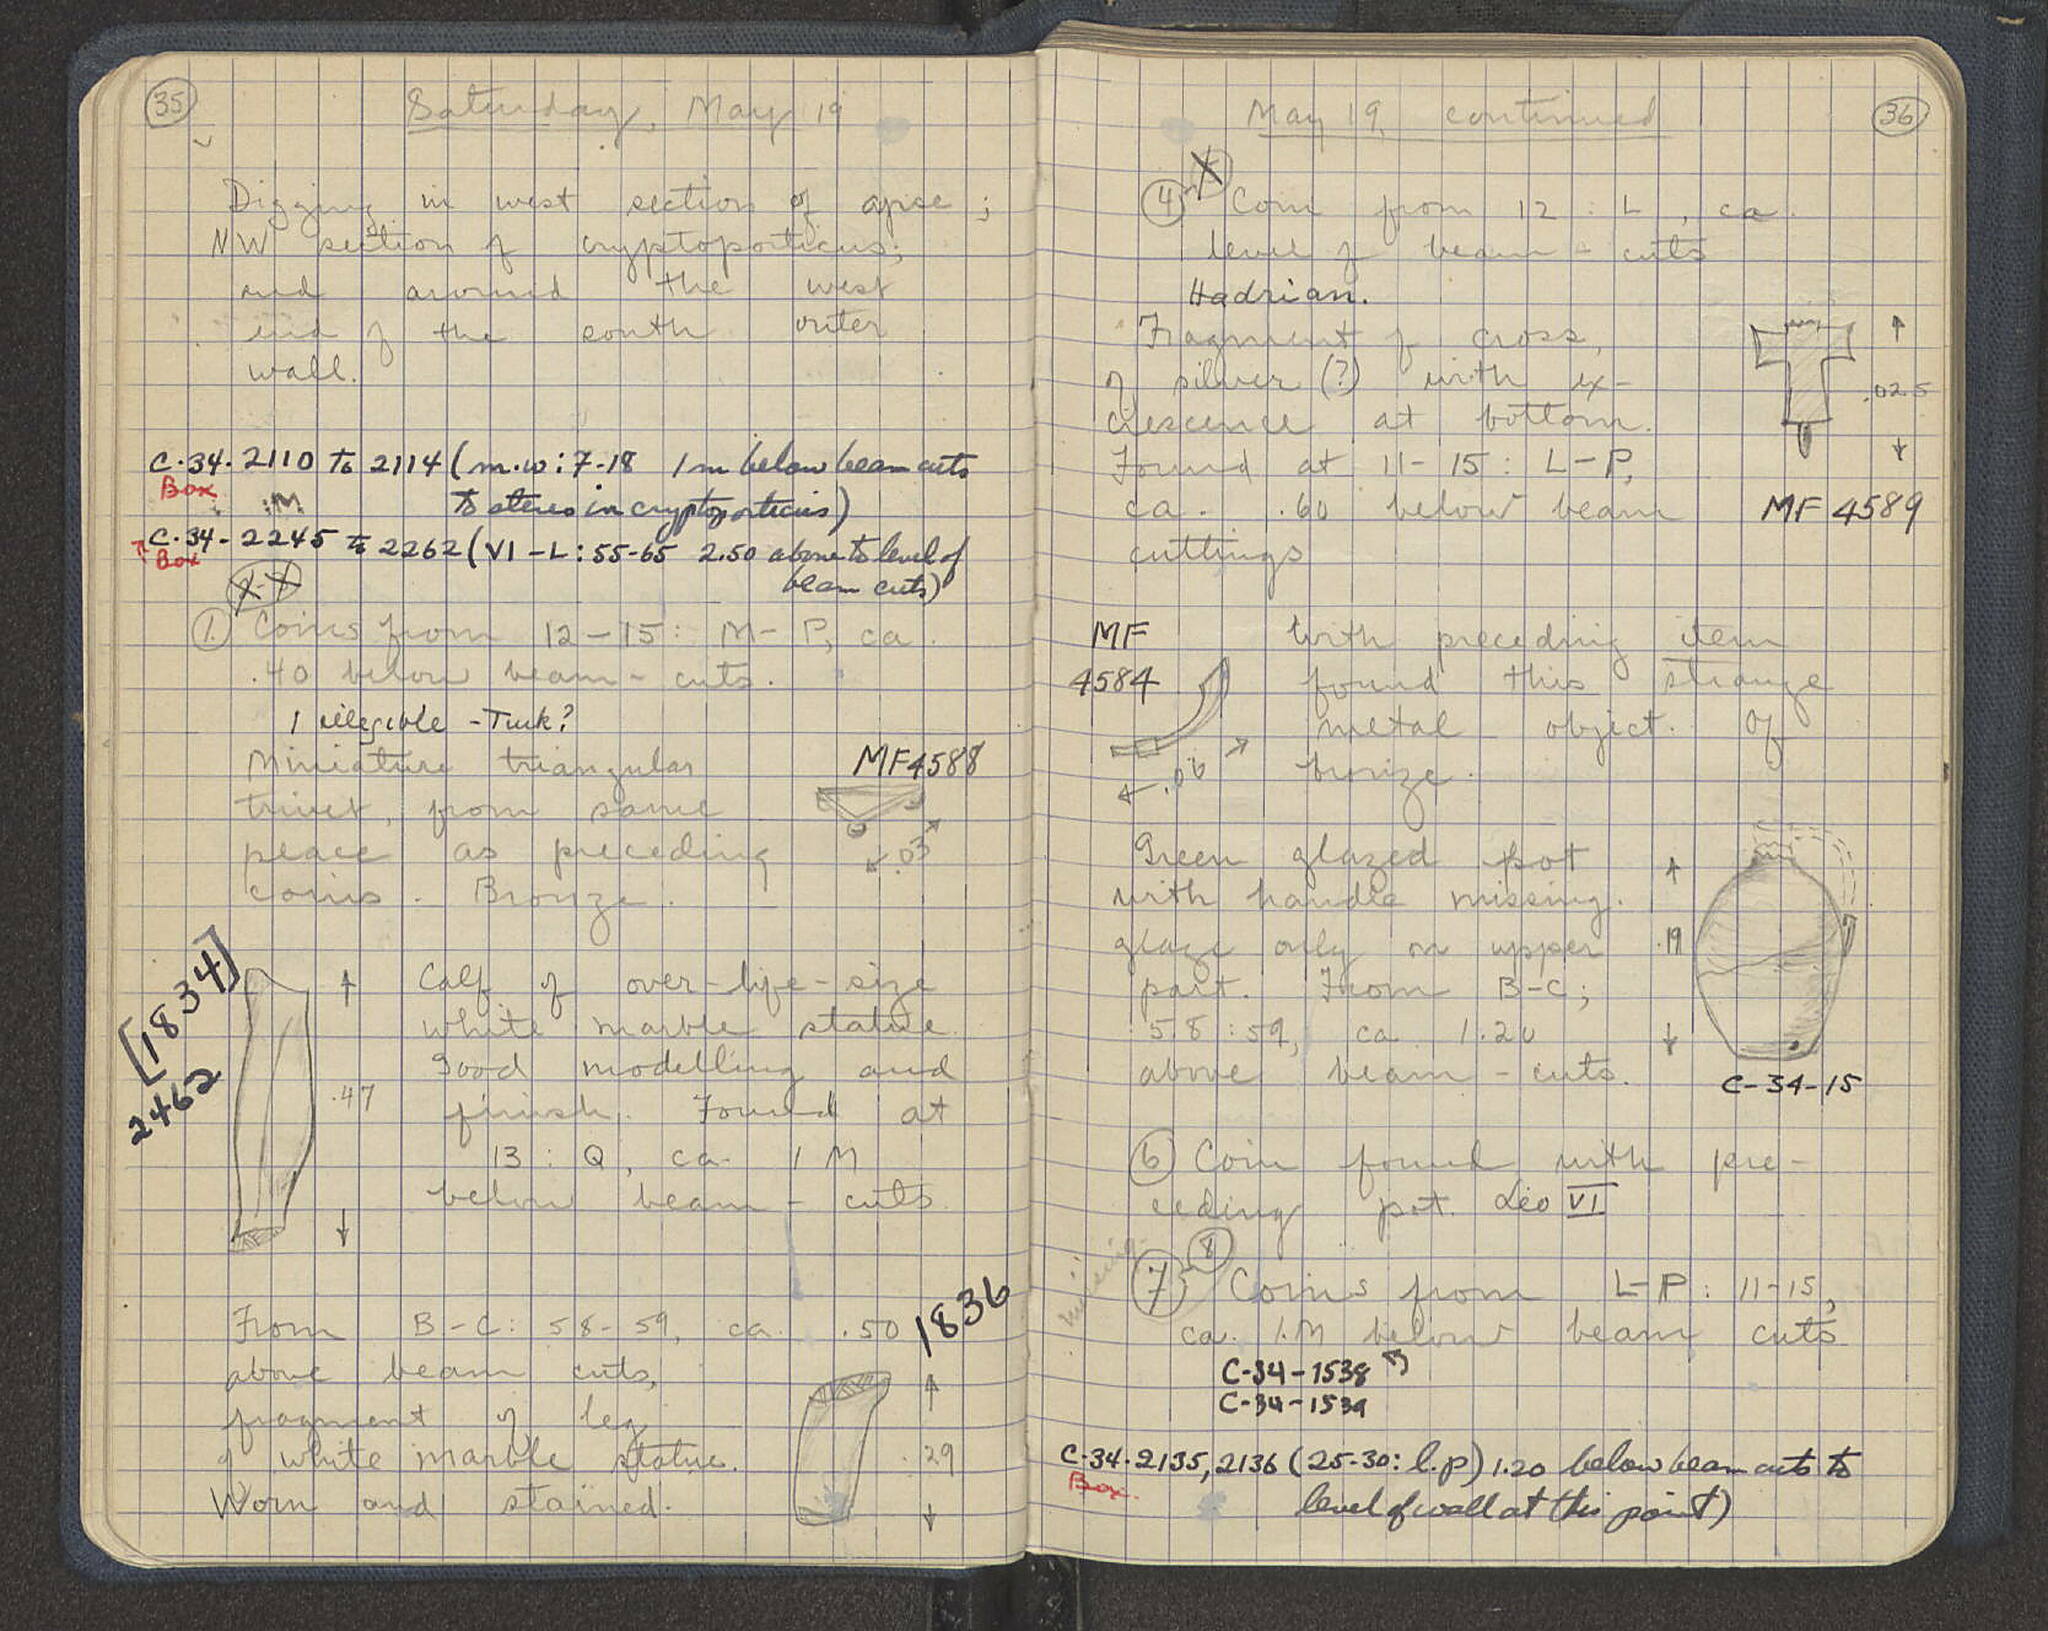 35
Saturday, May 19
Digging in west section of apse;
NW section of cryptoporticus;
and around the west
end of the south outer
wall.
C.34.2110 to 2114 (m.w: 7-18 1m below beam cuts
Box :M to stereo in cryptoporticus)
C.34-2245 to 2262 (VI-L: 55-65 2.50 above to level of
Box beam cuts)
1. Coins from 12-15: M-P, ca.
.40 below beam-cuts.
1 illegible - Turk?
Miniature triangular MF4588
trivet, from same
peace as preceding .03
coins. Bronze.
[1834]
2462
Calf of over-life-size
white marble statue.
Good modelling and
.47
finish. Found at
13 : Q, ca. 1 M
below beam-cuts.
From B-C: 58-59, ca. .50 1836
above beam cuts,
fragment of leg
of white marble statue. .29
Worn and stained.
May 19, continued 36
4 Coin from 12 : L, ca.
level of beam-cuts
Hadrian.
Fragment of cross,
of silver (?) with ex- .02.5
crescence at bottom.
Found at 11-15: L-P,
ca. .60 below beam MF 4589
cuttings
MF With preceding item
4584 found this strange
metal object. Of
.06 bronze.
Green glazed pot
with handle missing.
glaze only on upper .19
part. From B-C;
58:59, ca. 1.20
above beam-cuts. C-34-15
6 Coin found with pre-
ceding pot. Leo VI
missing
7 8 Coins from L-P: 11-15,
ca. 1.M below beam cuts
C-34-1538
C-34-1539
C.34.2135, 2136 (25-30: l.p) 1.20 below beam cuts to
Box. level of wall at this point)